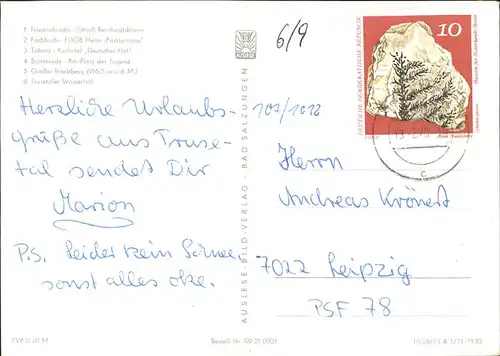 1 Friedrichroda - Schloß Reinhardsbrunn
2 Finsterbergen - FDGB-Heim "Pochtemann"
3 Tabarz - Kurhotel "Deutscher Hof"
4 Brotterode - Am Platz der Jugend
5 Großer Inselsberg (916,5 m ü.d.M.)
6 Trusetaler Wasserfall
6/9
102/1012
Herzliche Urlaubs-
grüße aus Truse-
tal sendet Dir
Marion
P.S. Leider kein Schnee,
sonst alles oke.
EVP 0,20 M
AUSLESE-BILD-VERLAG · BAD SALZUNGEN
Bestell-Nr. 09 21 0301
10
DEUTSCHE DEMOKRATISCHE REPUBLIK
Museum für Naturkunde Berlin
Herrn
Andreas Krönert
7022 Leipzig
PSF 78